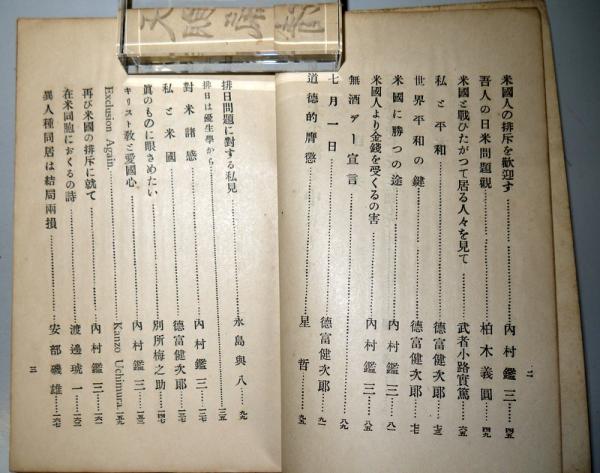 米國人の排斥を歡迎す……內村鑑三……四五
吾人の日米問題觀……柏木義圓……四九
米國と戰ひたがつて居る人々を見て……武者小路實篤……六五
私と平和……德富健次郎……七三
世界平和の鍵……德富健次郎……七七
米國に勝つの途……內村鑑三……八一
米國人より金錢を受くるの害……內村鑑三……八五
無酒デー宣言……八九
七月一日……德富健次郎……九二
道德的膺懲……星哲……九五
二
排日問題に對する私見……永島與八……九九
排日は優生學から……一三五
對米諸感……內村鑑三……一三七
私と米國……德富健次郎……
眞のものに眼さめたい……別所梅之助……一四七
キリスト敎と愛國心……內村鑑三……
Exclusion Again.……Kanzo Uchimura……一五九
再び米國の排斥に就て……內村鑑三……一六一
在米同胞におくるの詩……渡邊琥一……一六三
異人種同居は結局兩損……安部磯雄……一六七
三